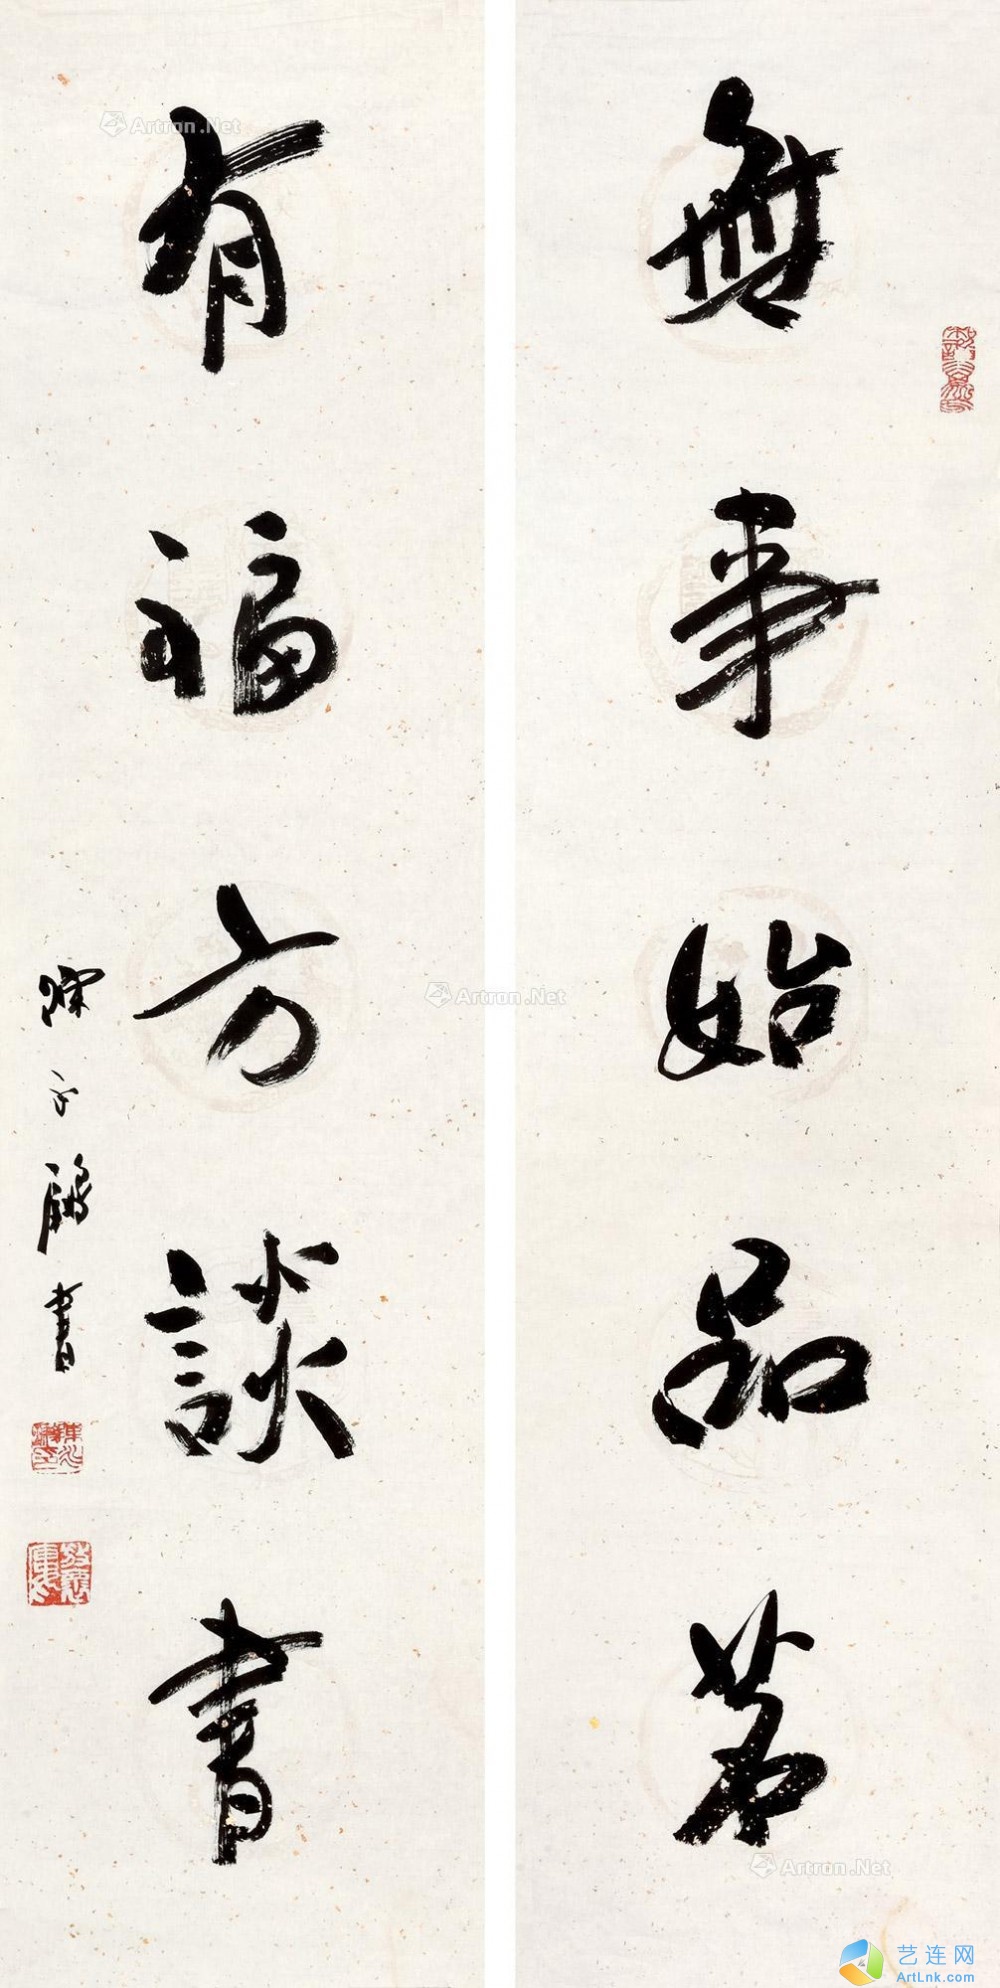 無事始品第
有福方談書
書
Artron.Net
Artron.Net
Artron.Net
艺连网
ArtLnk.com